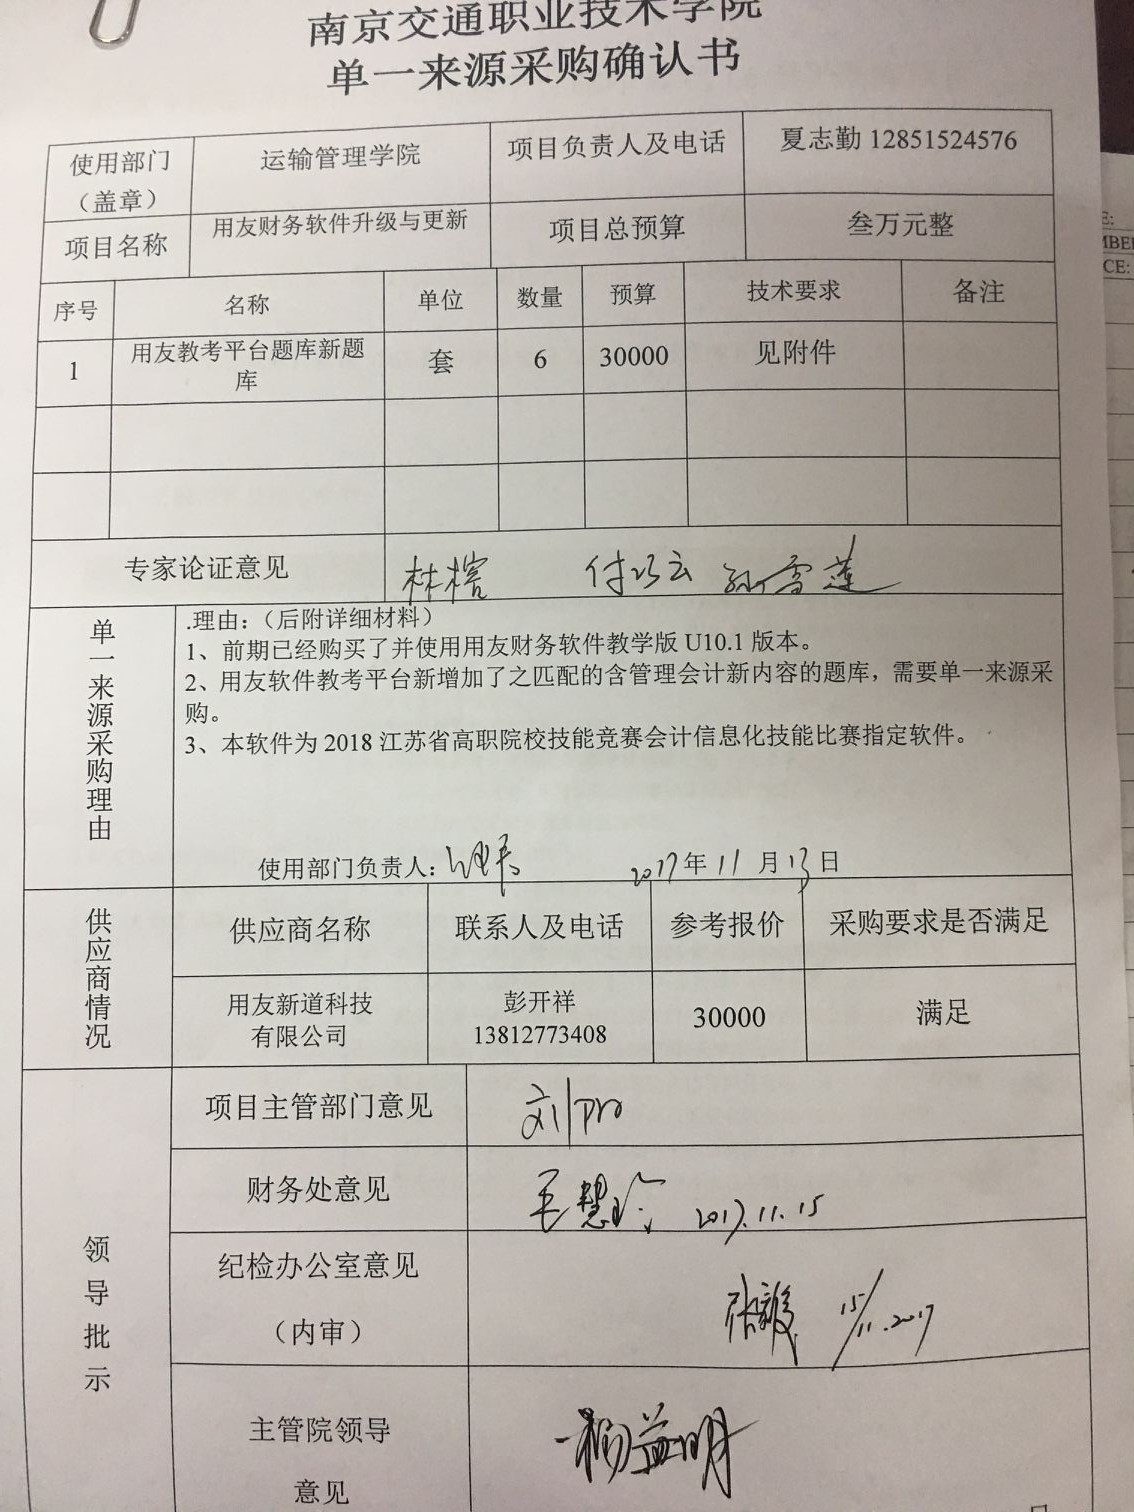 南京交通职业技术学院
单一来源采购确认书
使用部门
（盖章）
运输管理学院
项目负责人及电话
夏志勤 12851524576
项目名称
用友财务软件升级与更新
项目总预算
叁万元整
序号
名称
单位
数量
预算
技术要求
备注
1
用友教考平台题库新题
库
套
6
30000
见附件
专家论证意见
付巧云
孙雪莲
单一来源采购理由
.理由:（后附详细材料）
1、前期已经购买了并使用用友财务软件教学版 U10.1 版本。
2、用友软件教考平台新增加了之匹配的含管理会计新内容的题库，需要单一来源采
购。
3、本软件为 2018 江苏省高职院校技能竞赛会计信息化技能比赛指定软件。
使用部门负责人:
2017年 11 月 13 日
供应商情况
供应商名称
联系人及电话
参考报价
采购要求是否满足
用友新道科技
有限公司
彭开祥
13812773408
30000
满足
领导批示
项目主管部门意见
刘阳
财务处意见
毛慧玲 2017.11.15
纪检办公室意见
（内审）
15/11.2017
主管院领导
意见
杨益明